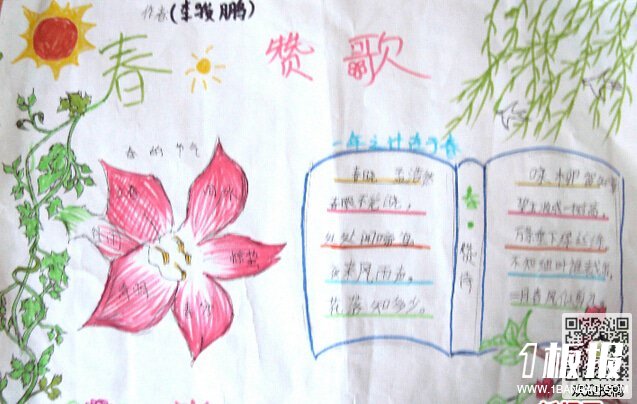 作者(李骏鹏)
春
赞歌
一年之计在于春
春的节气
立春
雨水
惊蛰
春分
清明
谷雨
春晓 孟浩然
春眠不觉晓,
处处闻啼鸟。
夜来风雨声,
花落知多少。
春·赞诗
咏柳 贺知章
碧玉妆成一树高,
万条垂下绿丝绦。
不知细叶谁裁出,
二月春风似剪刀。
1板报
WWW.1BANBAO.COM
欢迎投稿